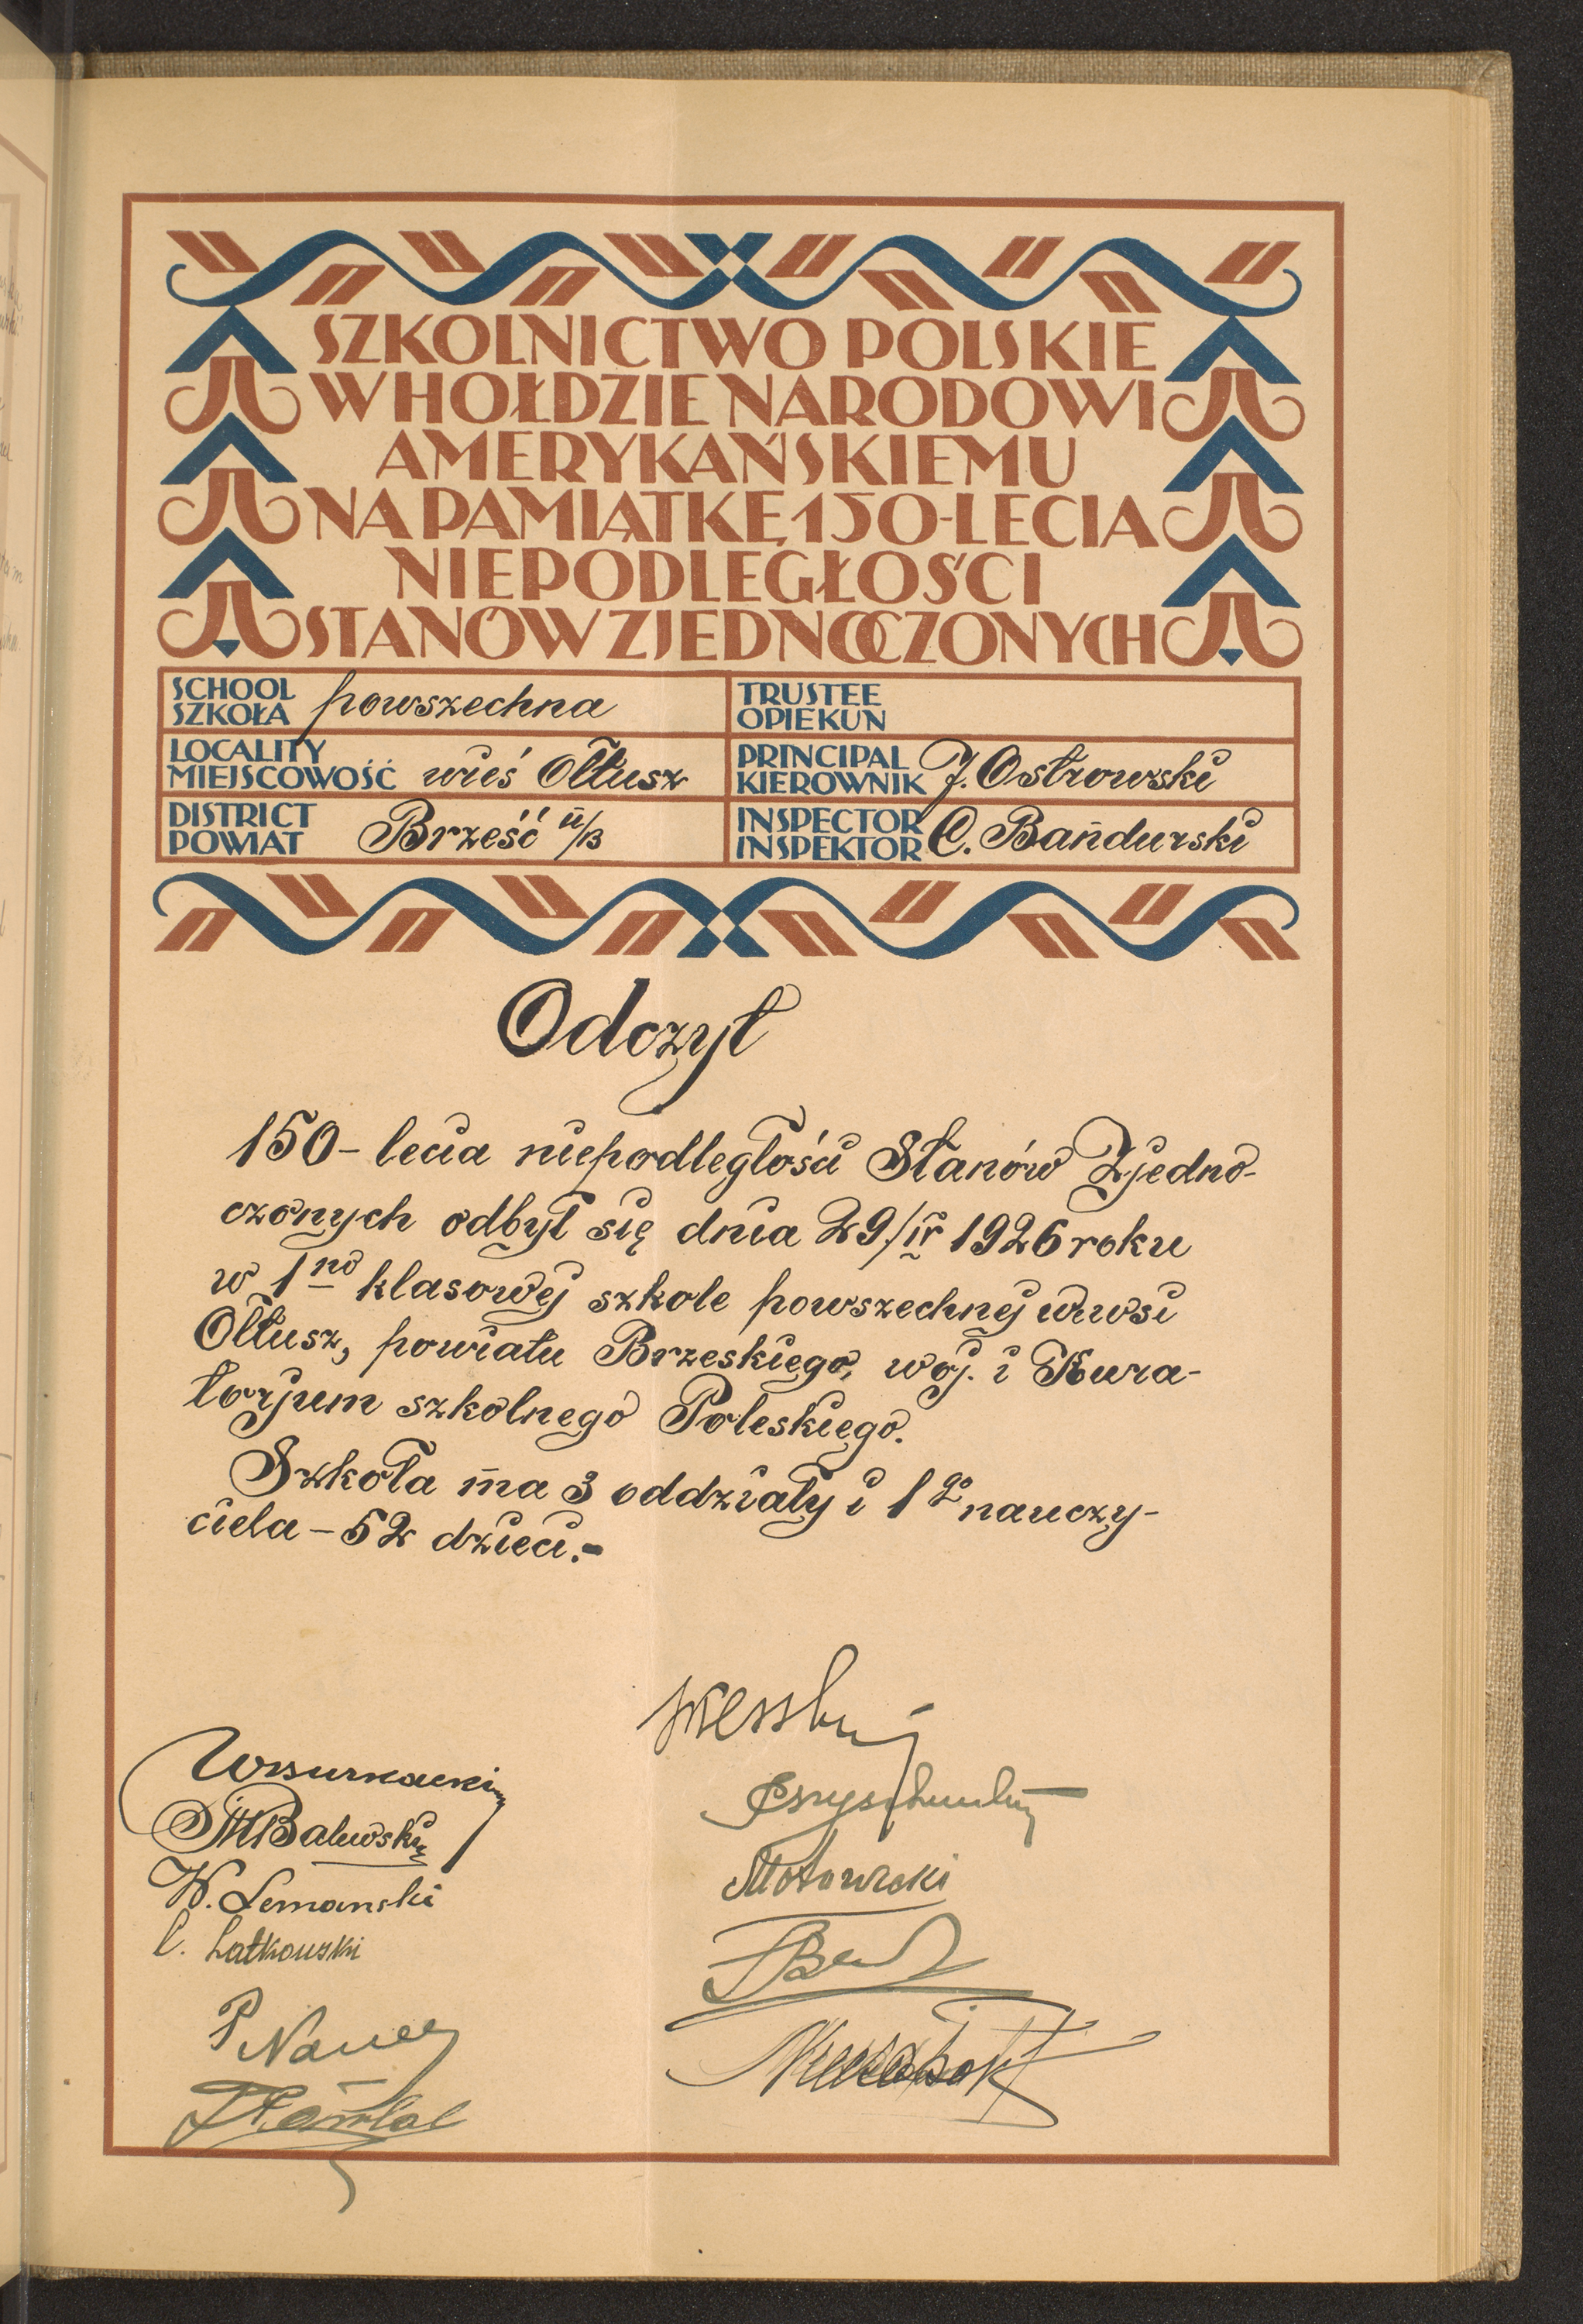 SZKOLNICTWO POLSKIE
W HOŁDZIE NARODOWI
AMERYKAŃSKIEMU
NA PAMIĄTKĘ 150-LECIA
NIEPODLEGŁOŚCI
STANÓW ZJEDNOCZONYCH
SCHOOL
SZKOŁA powszechna
TRUSTEE
OPIEKUN
LOCALITY
MIEJSCOWOŚĆ wieś Ołtusz
PRINCIPAL
KIEROWNIK J. Ostrowski
DISTRICT
POWIAT Brześć n/B
INSPECTOR
INSPEKTOR C. Bandurski
Odczyt
150-lecia niepodległości Stanów Zjedno-
czonych odbył się dnia 29/IV 1926 roku
w 1no klasowej szkole powszechnej wewsi
Ołtusz, powiatu Brzeskiego, woj. i Kura-
torjum szkolnego Poleskiego.
Szkoła ma 3 oddziały i 1go nauczy-
ciela - 52 dzieci.-
Balewski
W. Lemanski
C. Latkowski
Motowski